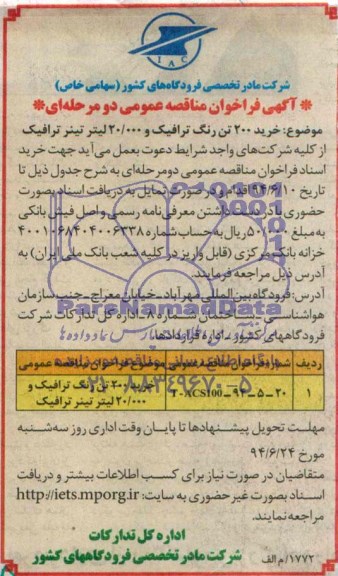 IAC
شرکت مادر تخصصی فرودگاه‌های کشور (سهامی خاص)
* آگهی فراخوان مناقصه عمومی دو مرحله‌ای *
موضوع: خرید ۲۰۰ تن رنگ ترافیک و ۲۰/۰۰۰ لیتر تینر ترافیک
از کلیه شرکت‌های واجد شرایط دعوت بعمل می‌آید جهت خرید
اسناد فراخوان مناقصه عمومی دومرحله‌ای به شرح جدول ذیل تا
تاریخ ۹۴/۶/۱۰ اقدام و در صورت تمایل به دریافت اسناد بصورت
حضوری با در دست داشتن معرفی‌نامه رسمی و اصل فیش بانکی
به مبلغ ۵۰۰/۰۰۰ ریال به حساب شماره ۴۰۰۱۰۶۸۴۰۴۰۰۶۳۳۸
خزانه بانک مرکزی (قابل واریز در کلیه شعب بانک ملی ایران) به
آدرس ذیل مراجعه فرمایند.
آدرس: فرودگاه بین‌المللی مهرآباد - خیابان معراج - جنب سازمان
هواشناسی - ساختمان شماره ۸ - اداره کل تدارکات شرکت
فرودگاههای کشور - اداره قراردادها
ردیف شماره فراخوان مناقصه عمومی موضوع فراخوان مناقصه عمومی
۱ ۲۰-۵-۹۴-T-ACS100 خرید ۲۰۰ تن رنگ ترافیک و
۲۰/۰۰۰ لیتر تینر ترافیک
ParsNamadData
پایگاه اطلاع رسانی مناقصه و مزایده
۰۲۱-۸۸۳۴۹۶۷۰-۵
مهلت تحویل پیشنهادها تا پایان وقت اداری روز سه‌شنبه
مورخ ۹۴/۶/۲۴
متقاضیان در صورت نیاز برای کسب اطلاعات بیشتر و دریافت
اسناد بصورت غیرحضوری به سایت: http://iets.mporg.ir
مراجعه نمایند.
اداره کل تدارکات
شرکت مادر تخصصی فرودگاههای کشور
۱۷۷۲/م الف